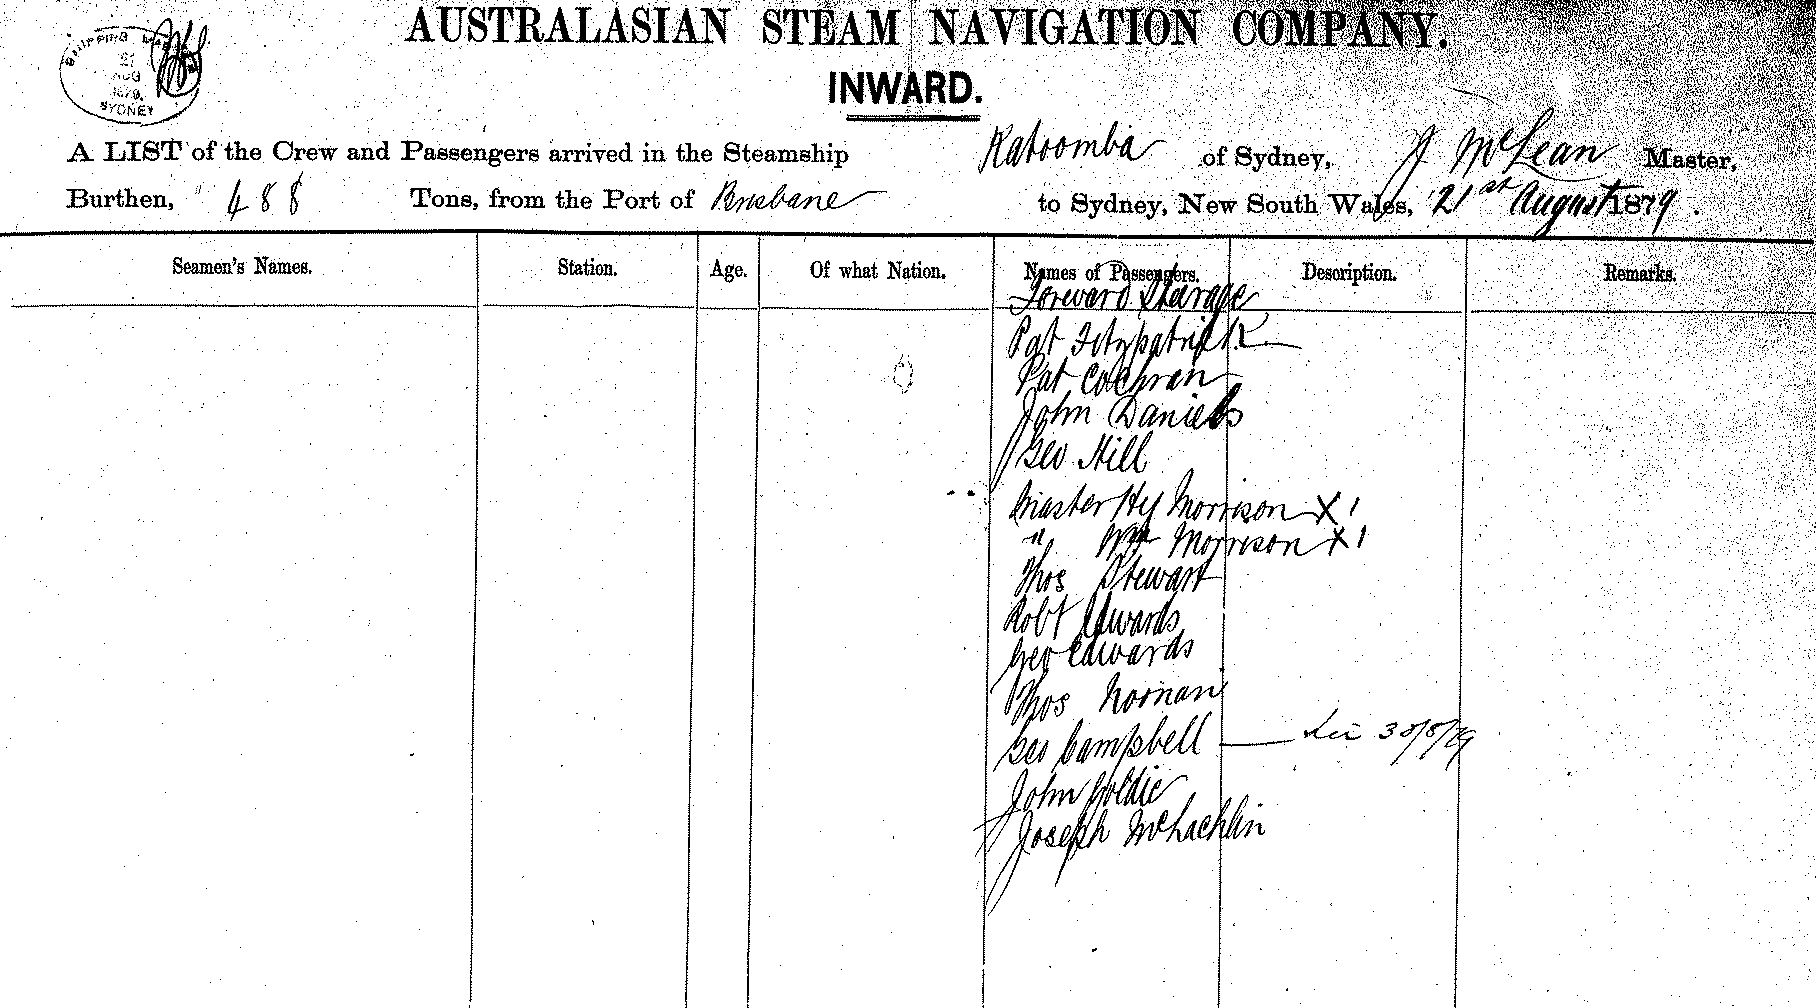 AUSTRALASIAN STEAM NAVIGATION COMPANY.
SHIPPING MASTER
21
AUG
1879.
SYDNEY
INWARD.
A LIST of the Crew and Passengers arrived in the Steamship Katoomba of Sydney, J McLean Master,
Burthen, 488 Tons, from the Port of Brisbane to Sydney, New South Wales, 21st August 1879.
Seamen's Names. Station. Age. Of what Nation. Names of Passengers. Description. Remarks.
Forward Steerage
Pat Fitzpatrick
Pat Cochran
John Daniels
Geo Hill
Master Hy Morrison X 1
" Wm Morrison X 1
Thos Stewart
Robt Edwards
Geo Edwards
Thos Noonan
Geo Campbell — 30/8/79
John Goldie
Joseph McLachlin